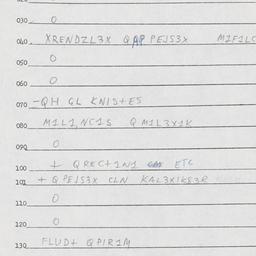 030 O
040 XRENDZL3X QAP PEJS3X M1F1LC
050 O
060 O
070 -QH GL KNIS+ES
080 M1L1,NC1S QM1L3X1K
090 O
+ QREC+1N1 ETC
100
101 + QPEJS3X CLN KAL3X1KS3R
110 O
120 O
130 FLUD+ QPIR1M